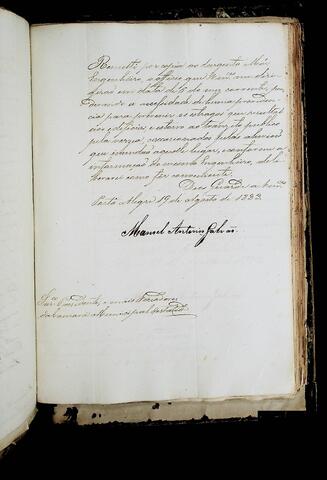 Remetti por copia ao Sargento Mór
Engenheiro, o officio que Vm.ces me diri
girão em data de 5 do mez corrente pon
derando a necessidade de huma providen
cia para prevenir os estragos que resultão
aos edificios e estorvo ao transito publico
pela
que no lugar, e conforme a
informação do mesmo Engenheiro, deli
berará como for conveniente.
Deos Guarde a Vm.ces
Porto Alegre 19 de Agosto de 1833.
Manoel Antonio Galvão.
Snr.es Presidente, e mais Vereadores
da Camara Municipal desta Cid.e